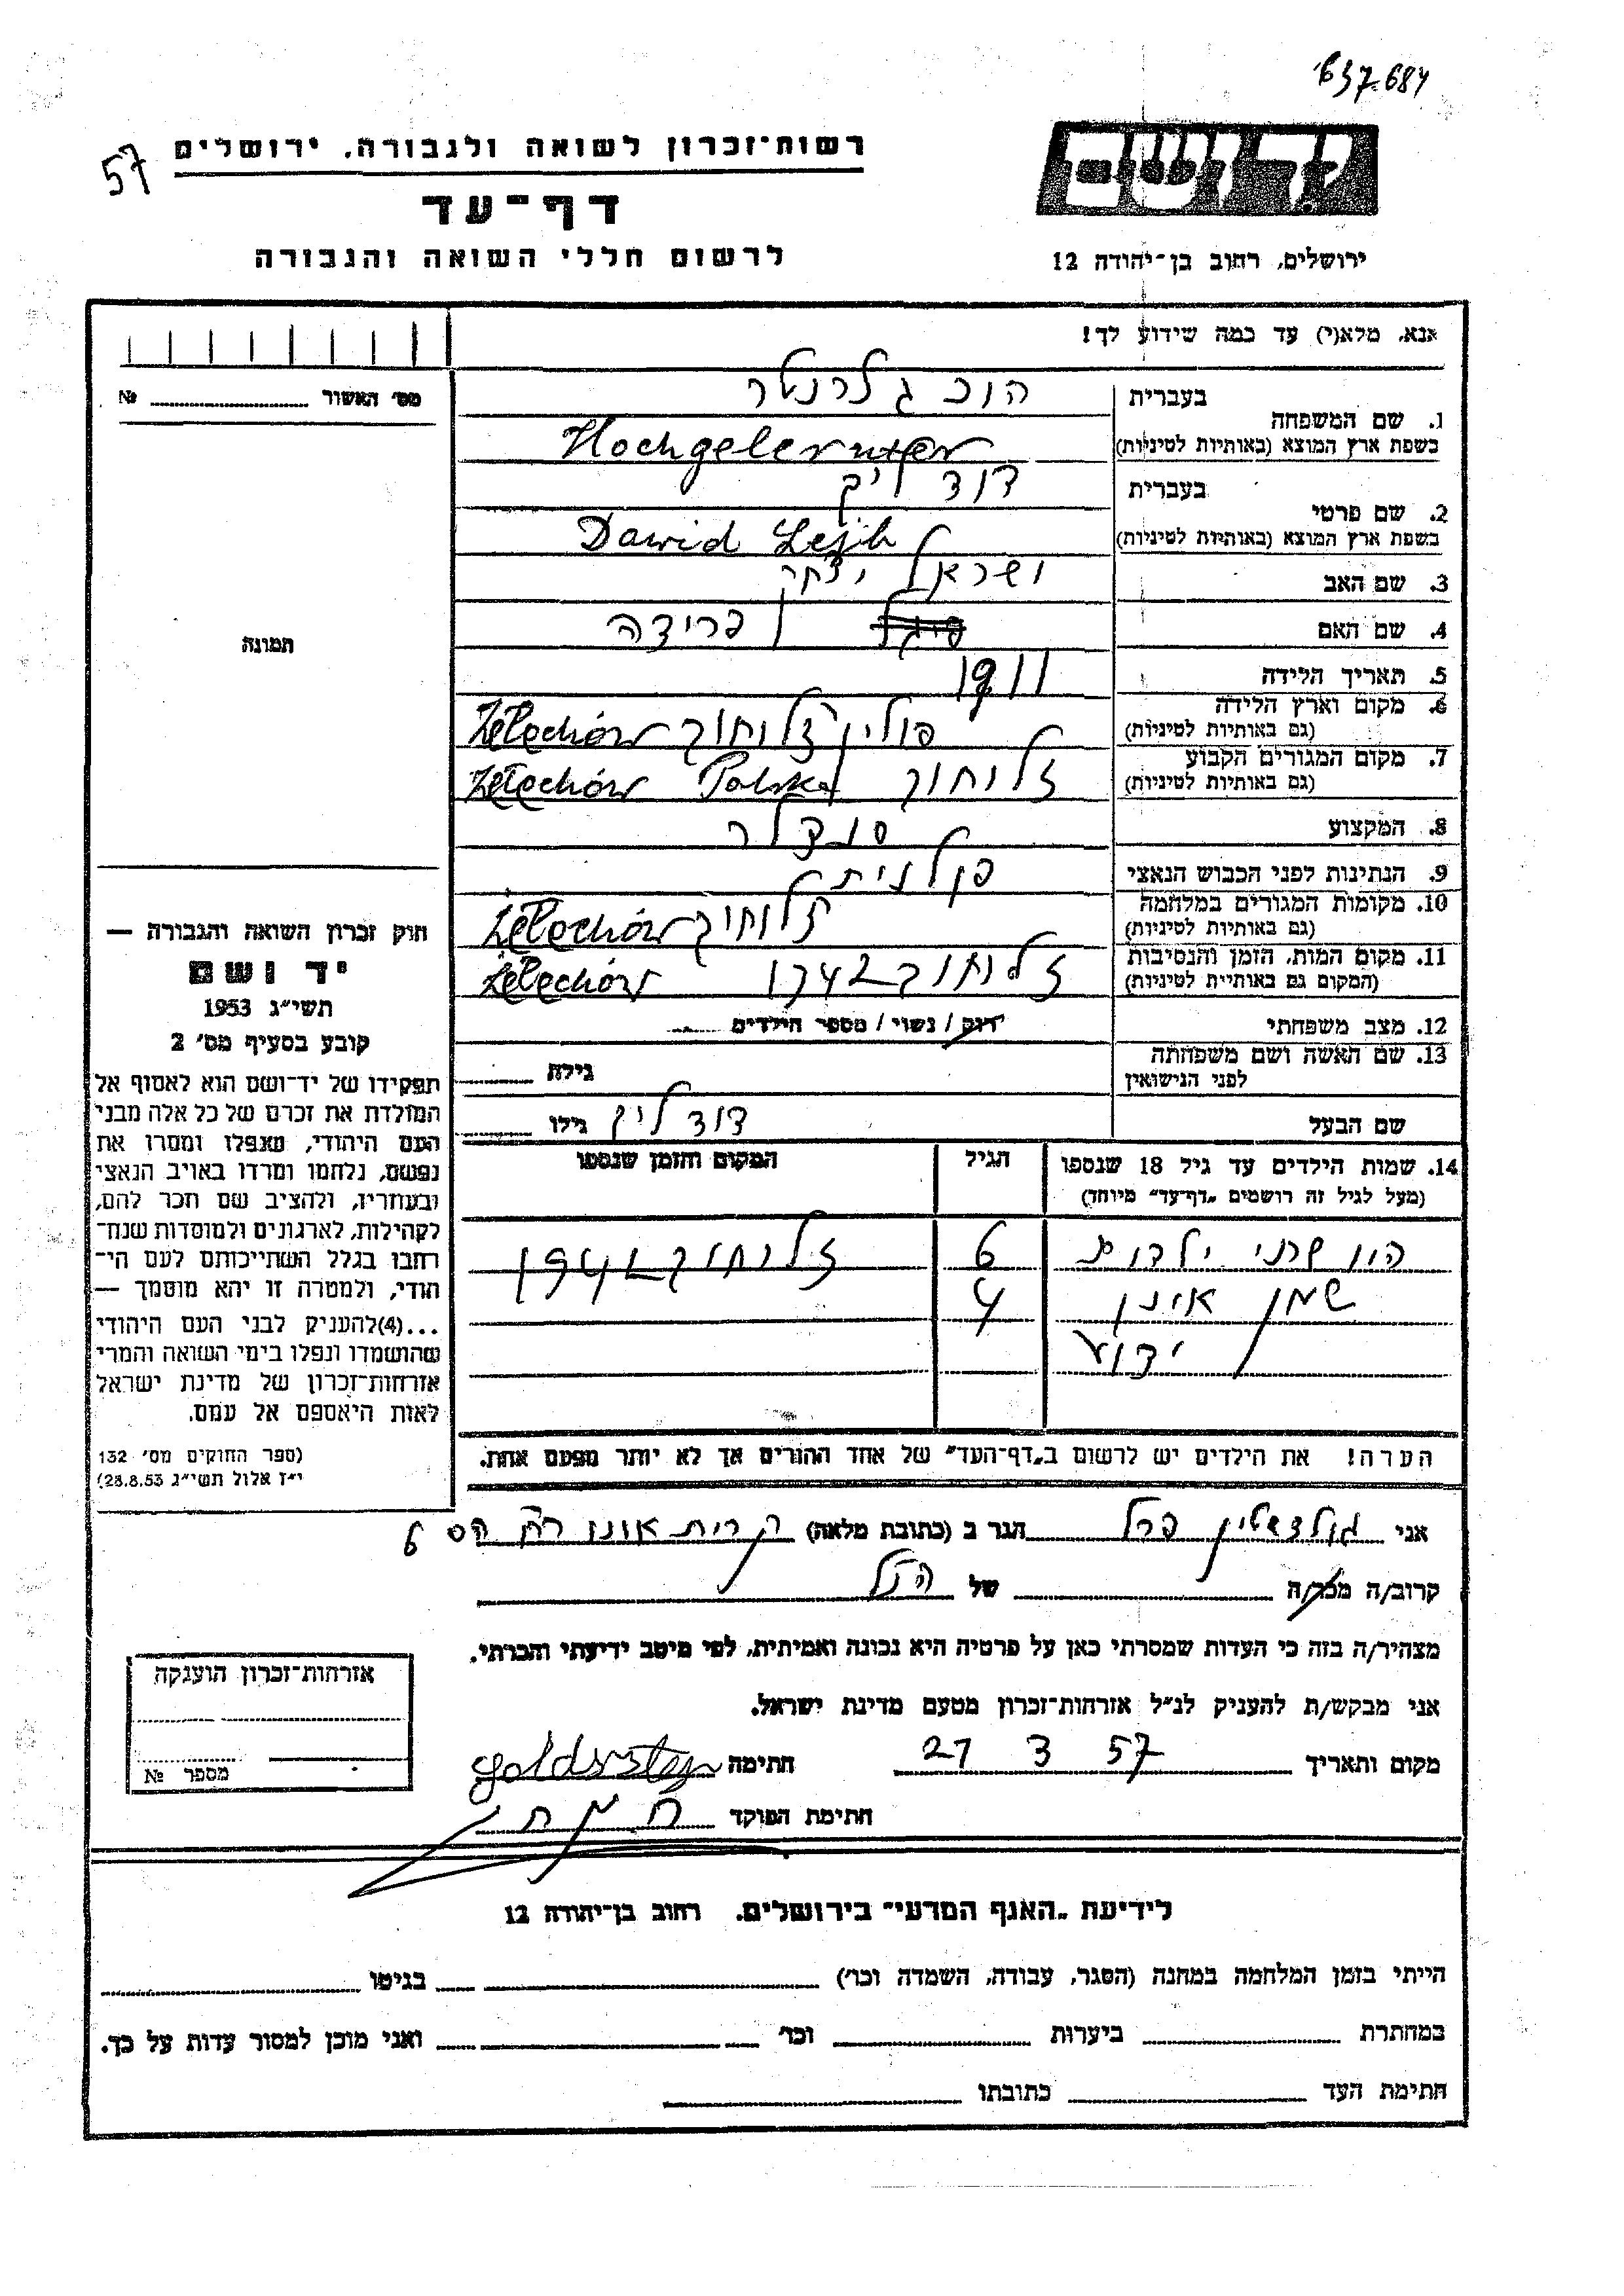 637684
57
רשות-זכרון לשואה ולגבורה, ירושלים
דף-עד
לרשום חללי השואה והגבורה
יד ושם
ירושלים, רחוב בן-יהודה 12
אנא, מלא(י) עד כמה שידוע לך!
מס' האשור № 
1. שם המשפחה בעברית הוכגלרנטר
בשפת ארץ המוצא (באותיות לטיניות) Hochgelernter
2. שם פרטי בעברית דוד ליב
בשפת ארץ המוצא (באותיות לטיניות) Dawid Lejb
3. שם האב ישראל יצחק
4. שם האם פרידה
5. תאריך הלידה 1911
6. מקום וארץ הלידה (גם באותיות לטיניות) פולין זלוחוב Żelechów
7. מקום המגורים הקבוע (גם באותיות לטיניות) זלוחוב Polska Żelechów
8. המקצוע סנדלר
9. הנתינות לפני הכבוש הנאצי פולנית
10. מקומות המגורים במלחמה (גם באותיות לטיניות) זלוחוב Żelechów
11. מקום המות, הזמן והנסיבות (המקום גם באותיות לטיניות) זלוחוב 1942 Żelechów
12. מצב משפחתי רווק / נשוי / מספר הילדים
13. שם האשה ושם משפחתה לפני הנישואין גילה
שם הבעל דוד ליב גילו
14. שמות הילדים עד גיל 18 שנספו הגיל המקום והזמן שנספו
(מעל לגיל זה רושמים "דף-עד" מיוחד)
היו שתי ילדות 6 זלוחוב 1942
שמן אינן 4
ידוע
הערה! את הילדים יש לרשום ב"דף-העד" של אחד ההורים אך לא יותר מפעם אחת.
תמונה
חוק זכרון השואה והגבורה —
יד ושם
תשי"ג 1953
קובע בסעיף מס' 2
תפקידו של יד-ושם הוא לאסוף אל
המולדת את זכרם של כל אלה מבני
העם היהודי, שנפלו ומסרו את
נפשם, נלחמו ומרדו באויב הנאצי
ובעוזריו, ולהציב שם וזכר להם,
לקהילות, לארגונים ולמוסדות שנח-
רבו בגלל השתייכותם לעם הי-
הודי, ולמטרה זו יהא מוסמך —
...(4)להעניק לבני העם היהודי
שהושמדו ונפלו בימי השואה והמרי
אזרחות-זכרון של מדינת ישראל
לאות היאספם אל עמם.
(ספר החוקים מס' 132
י"ז אלול תשי"ג 28.8.53)
אני גולדשטין פרל הגר ב (כתובת מלאה) קרית אונו רח' 6
קרוב/ה מכר/ה של הנ"ל
מצהיר/ה בזה כי העדות שמסרתי כאן על פרטיה היא נכונה ואמיתית, לפי מיטב ידיעתי והכרתי.
אני מבקש/ת להעניק לנ"ל אזרחות-זכרון מטעם מדינת ישראל.
מקום ותאריך 27 3 57 חתימה
חתימת הפוקד
אזרחות-זכרון הוענקה
מספר №
לידיעת "האגף המדעי" בירושלים, רחוב בן-יהודה 12
הייתי בזמן המלחמה במחנה (הסגר, עבודה, השמדה וכו') בגיטו
במחתרת ביערות וכו' ואני מוכן למסור עדות על כך.
חתימת העד כתובתו